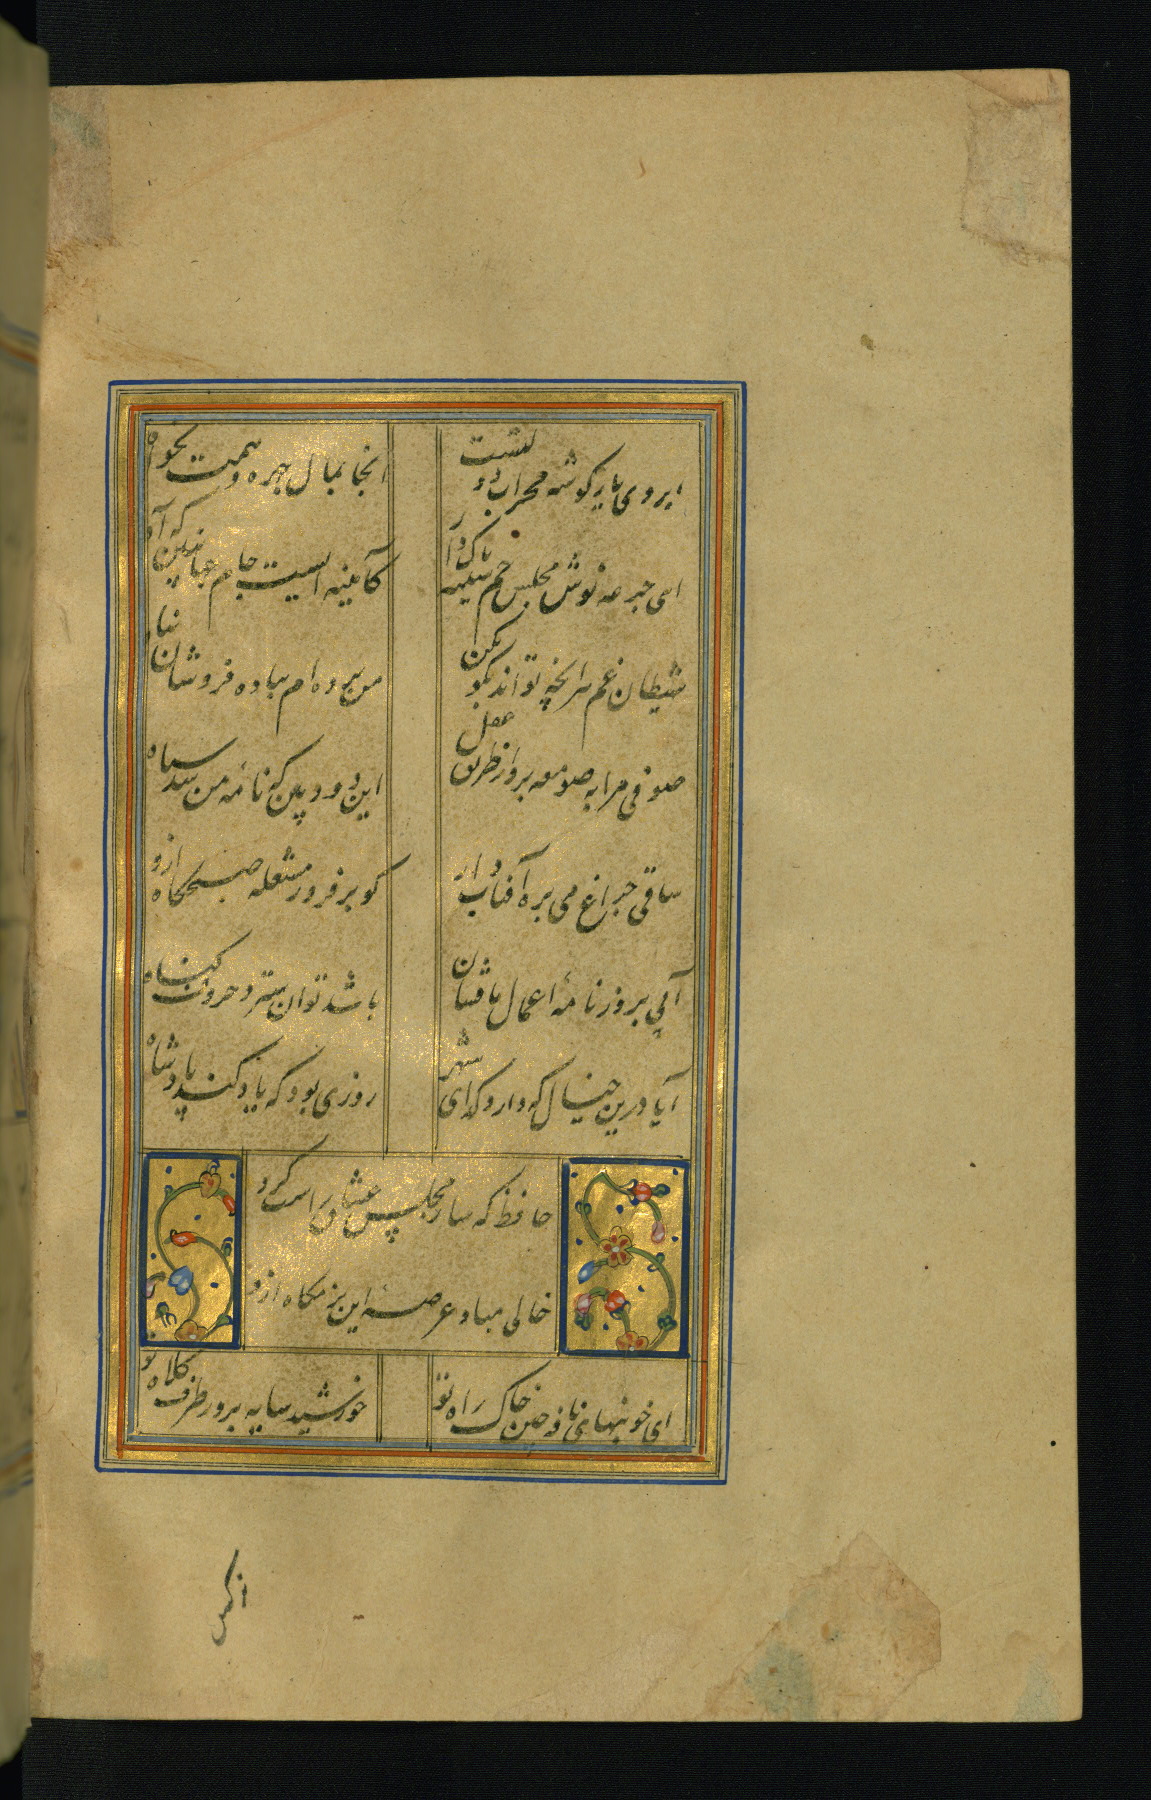 ابروی یار گوشه محراب دولتست
انجا بمال چهره و همت بخواه ازو
ای جرعه نوش مجلس جم سینه پاک دار
کآیینه ایست جام جهان بین که آه ازو
شیطان غم هرانچه تواند بگو بکن
من برده ام بباده فروشان پناه ازو
صوفی مرا به صومعه برد از طریق عقل
این دود بین که نامه من شد سیاه ازو
ساقی چراغ می بره آفتاب دار
کو برفروز مشعله صبحگاه ازو
آبی بروزنامه اعمال ما فشان
باشد توان سترد حروف گناه ازو
آیا درین خیال که دارد گدای شهر
روزی بود که یاد کند پادشاه ازو
حافظ که ساز مجلس عشاق راست کرد
خالی مباد عرصه این بزمگاه ازو
ای خونبهای نافه چین خاک راه تو
خورشید سایه پرور طرف کلاه تو
نرگس